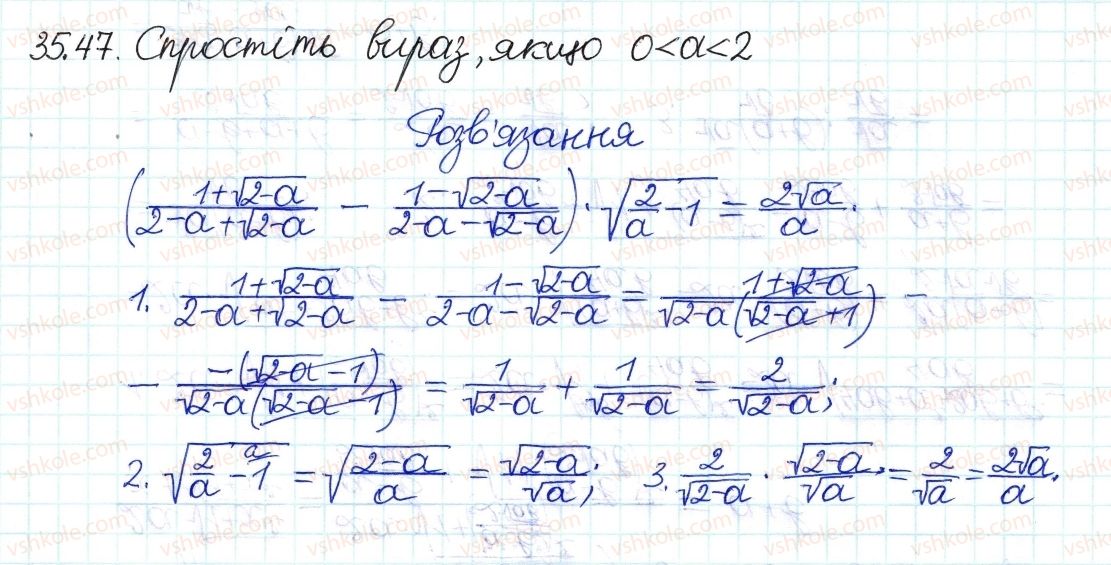 35.47. Спростіть вираз, якщо 0<a<2
Розв'язання
((1+√(2-a))/(2-a+√(2-a)) - (1-√(2-a))/(2-a-√(2-a))) · √(2/a-1) = 2√a/a.
1. (1+√(2-a))/(2-a+√(2-a)) - (1-√(2-a))/(2-a-√(2-a)) = (1+√(2-a))/(√(2-a)(√(2-a)+1)) -
- (-(√(2-a)-1))/(√(2-a)(√(2-a)-1)) = 1/√(2-a) + 1/√(2-a) = 2/√(2-a);
2. √(2/a-1) = √((2-a)/a) = √(2-a)/√a; 3. 2/√(2-a) · √(2-a)/√a = 2/√a = 2√a/a.
vshkole.com